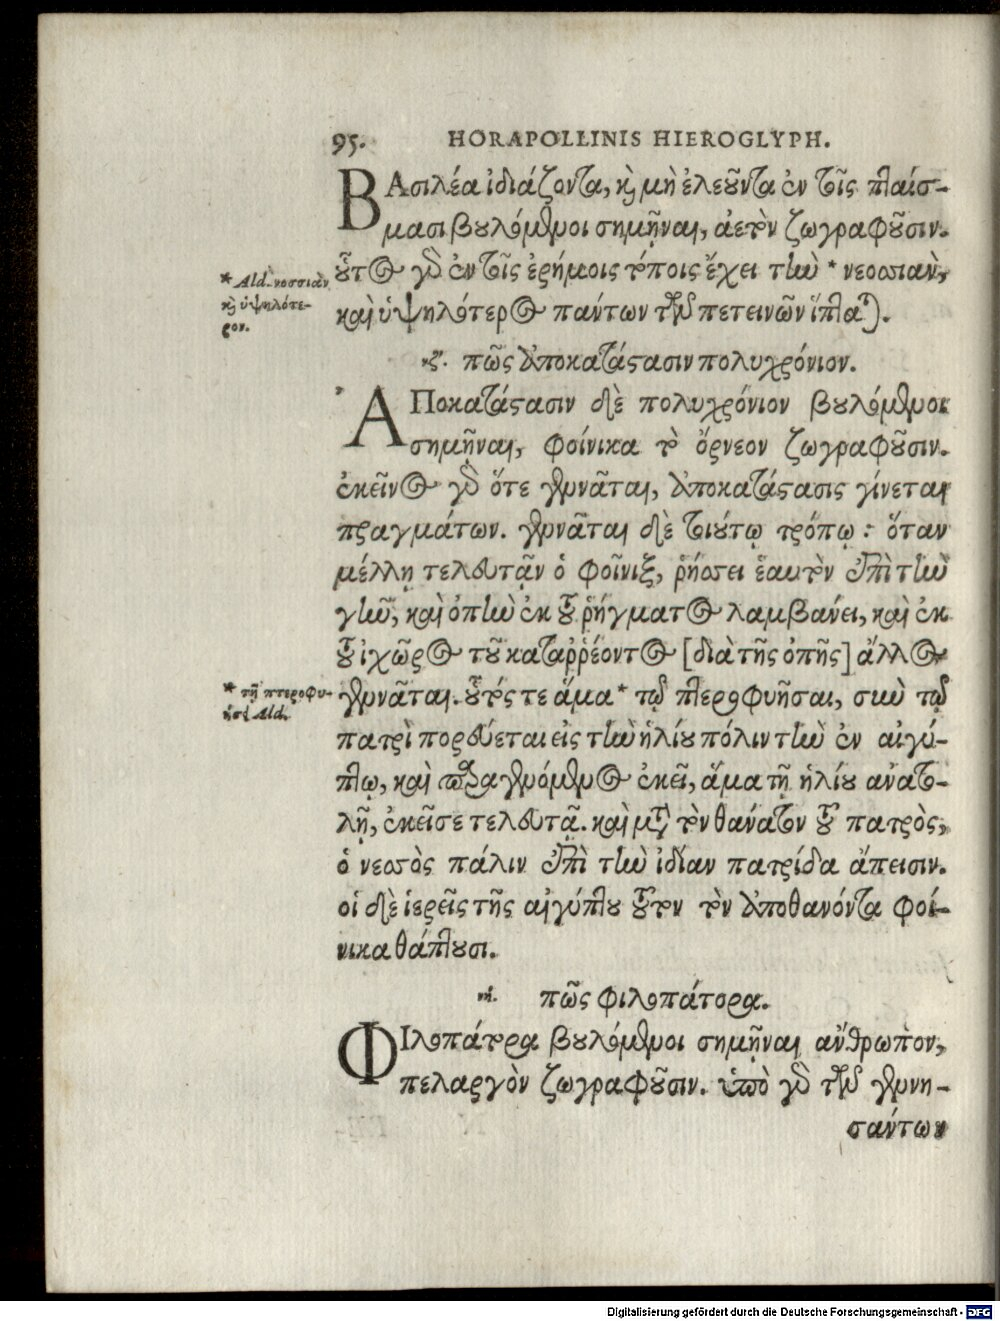 95. HORAPOLLINIS HIEROGLYPH.
ΒΑσιλέα ἰδιάζοντα, κὶ μὴ ἐλεοῦντα ἐν τοῖς πταίσ-
μασι βουλόμενοι σημῆναι, ἀετὸν ζωγραφοῦσιν.
οὗτος γὸ ἐν τοῖς ἐρήμοις τόποις ἔχει τὴν * νεοσσιὰν,
καὶ ὑψηλότερος πάντων τῶν πετεινῶν ἵπταται.
* Ald. νοσσιὰν
κὶ ὑψηλότε-
ρον.
νζ. πῶς ἀποκατάστασιν πολυχρόνιον.
ΑΠοκατάστασιν δὲ πολυχρόνιον βουλόμενοι
σημῆναι, φοίνικα τὸ ὄρνεον ζωγραφοῦσιν.
ἐκεῖνος γὸ ὅτε γεννᾶται, ἀποκατάστασις γίνεται
πραγμάτων. γεννᾶται δὲ τοιούτῳ τρόπῳ : ὅταν
μέλλῃ τελευτᾷν ὁ φοῖνιξ, ῥήσσει ἑαυτὸν ἐπὶ τὴν
γῆν, καὶ ὀπὴν ἐκ τοῦ ῥήγματος λαμβάνει, καὶ ἐκ
τοῦ ἰχῶρος τοῦ καταῤῥέοντος [διὰ τῆς ὀπῆς] ἄλλος
γεννᾶται. οὗτός τε ἅμα * τῷ πτεροφυῆσαι, σὺν τῷ
* τῇ πτεροφυ-
ήσει Ald.
πατρὶ πορεύεται εἰς τὴν ἡλίου πόλιν τὴν ἐν αἰγύ-
πτῳ, καὶ παραγενόμενος ἐκεῖ, ἅμα τῇ ἡλίου ἀνατο-
λῇ, ἐκεῖσε τελευτᾷ. καὶ μετὰ τὸν θάνατον τοῦ πατρὸς,
ὁ νεοσσὸς πάλιν ἐπὶ τὴν ἰδίαν πατρίδα ἄπεισιν.
οἱ δὲ ἱερεῖς τῆς αἰγύπτου τοῦτον τὸν ἀποθανόντα φοί-
νικα θάπτουσι.
νή. πῶς φιλοπάτορα.
ΦΙλοπάτορα βουλόμενοι σημῆναι ἄνθρωπον,
πελαργὸν ζωγραφοῦσιν. ὑπὸ γὸ τῶν γεννη-
σάντων
Digitalisierung gefördert durch die Deutsche Forschungsgemeinschaft - DFG